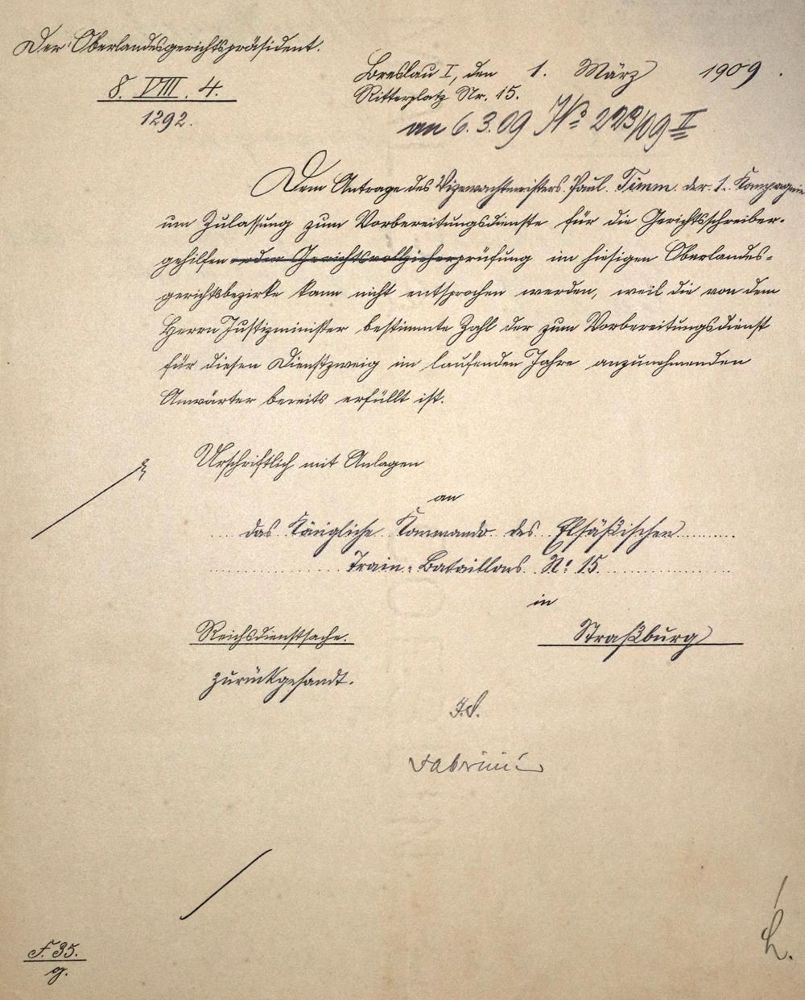 Der Oberlandesgerichtspräsident.
8. VIII. 4.
1292.
Breslau I, den 1. März 1909.
Ritterplatz Nr. 15.
an 6.3.09 No 223/09 II
Dem Antrage des Vizewachtmeisters Paul Timm der 1. Kompagnie
um Zulassung zum Vorbereitungsdienste für die Gerichtsschreiber-
gehilfen oder Gerichtsvollzieherprüfung im hiesigen Oberlandes-
gerichtsbezirke kann nicht entsprochen werden, weil die von dem
Herrn Justizminister bestimmte Zahl der zum Vorbereitungsdienst
für diesen Dienstzweig im laufenden Jahre anzunehmenden
Anwärter bereits erfüllt ist.
Urschriftlich mit Anlagen
an
das Königliche Kommando des Elsäßischen
Train-Bataillons No 15
in
Reichsdienstsache. Straßburg
zurückgesandt.
F. 35.
g.